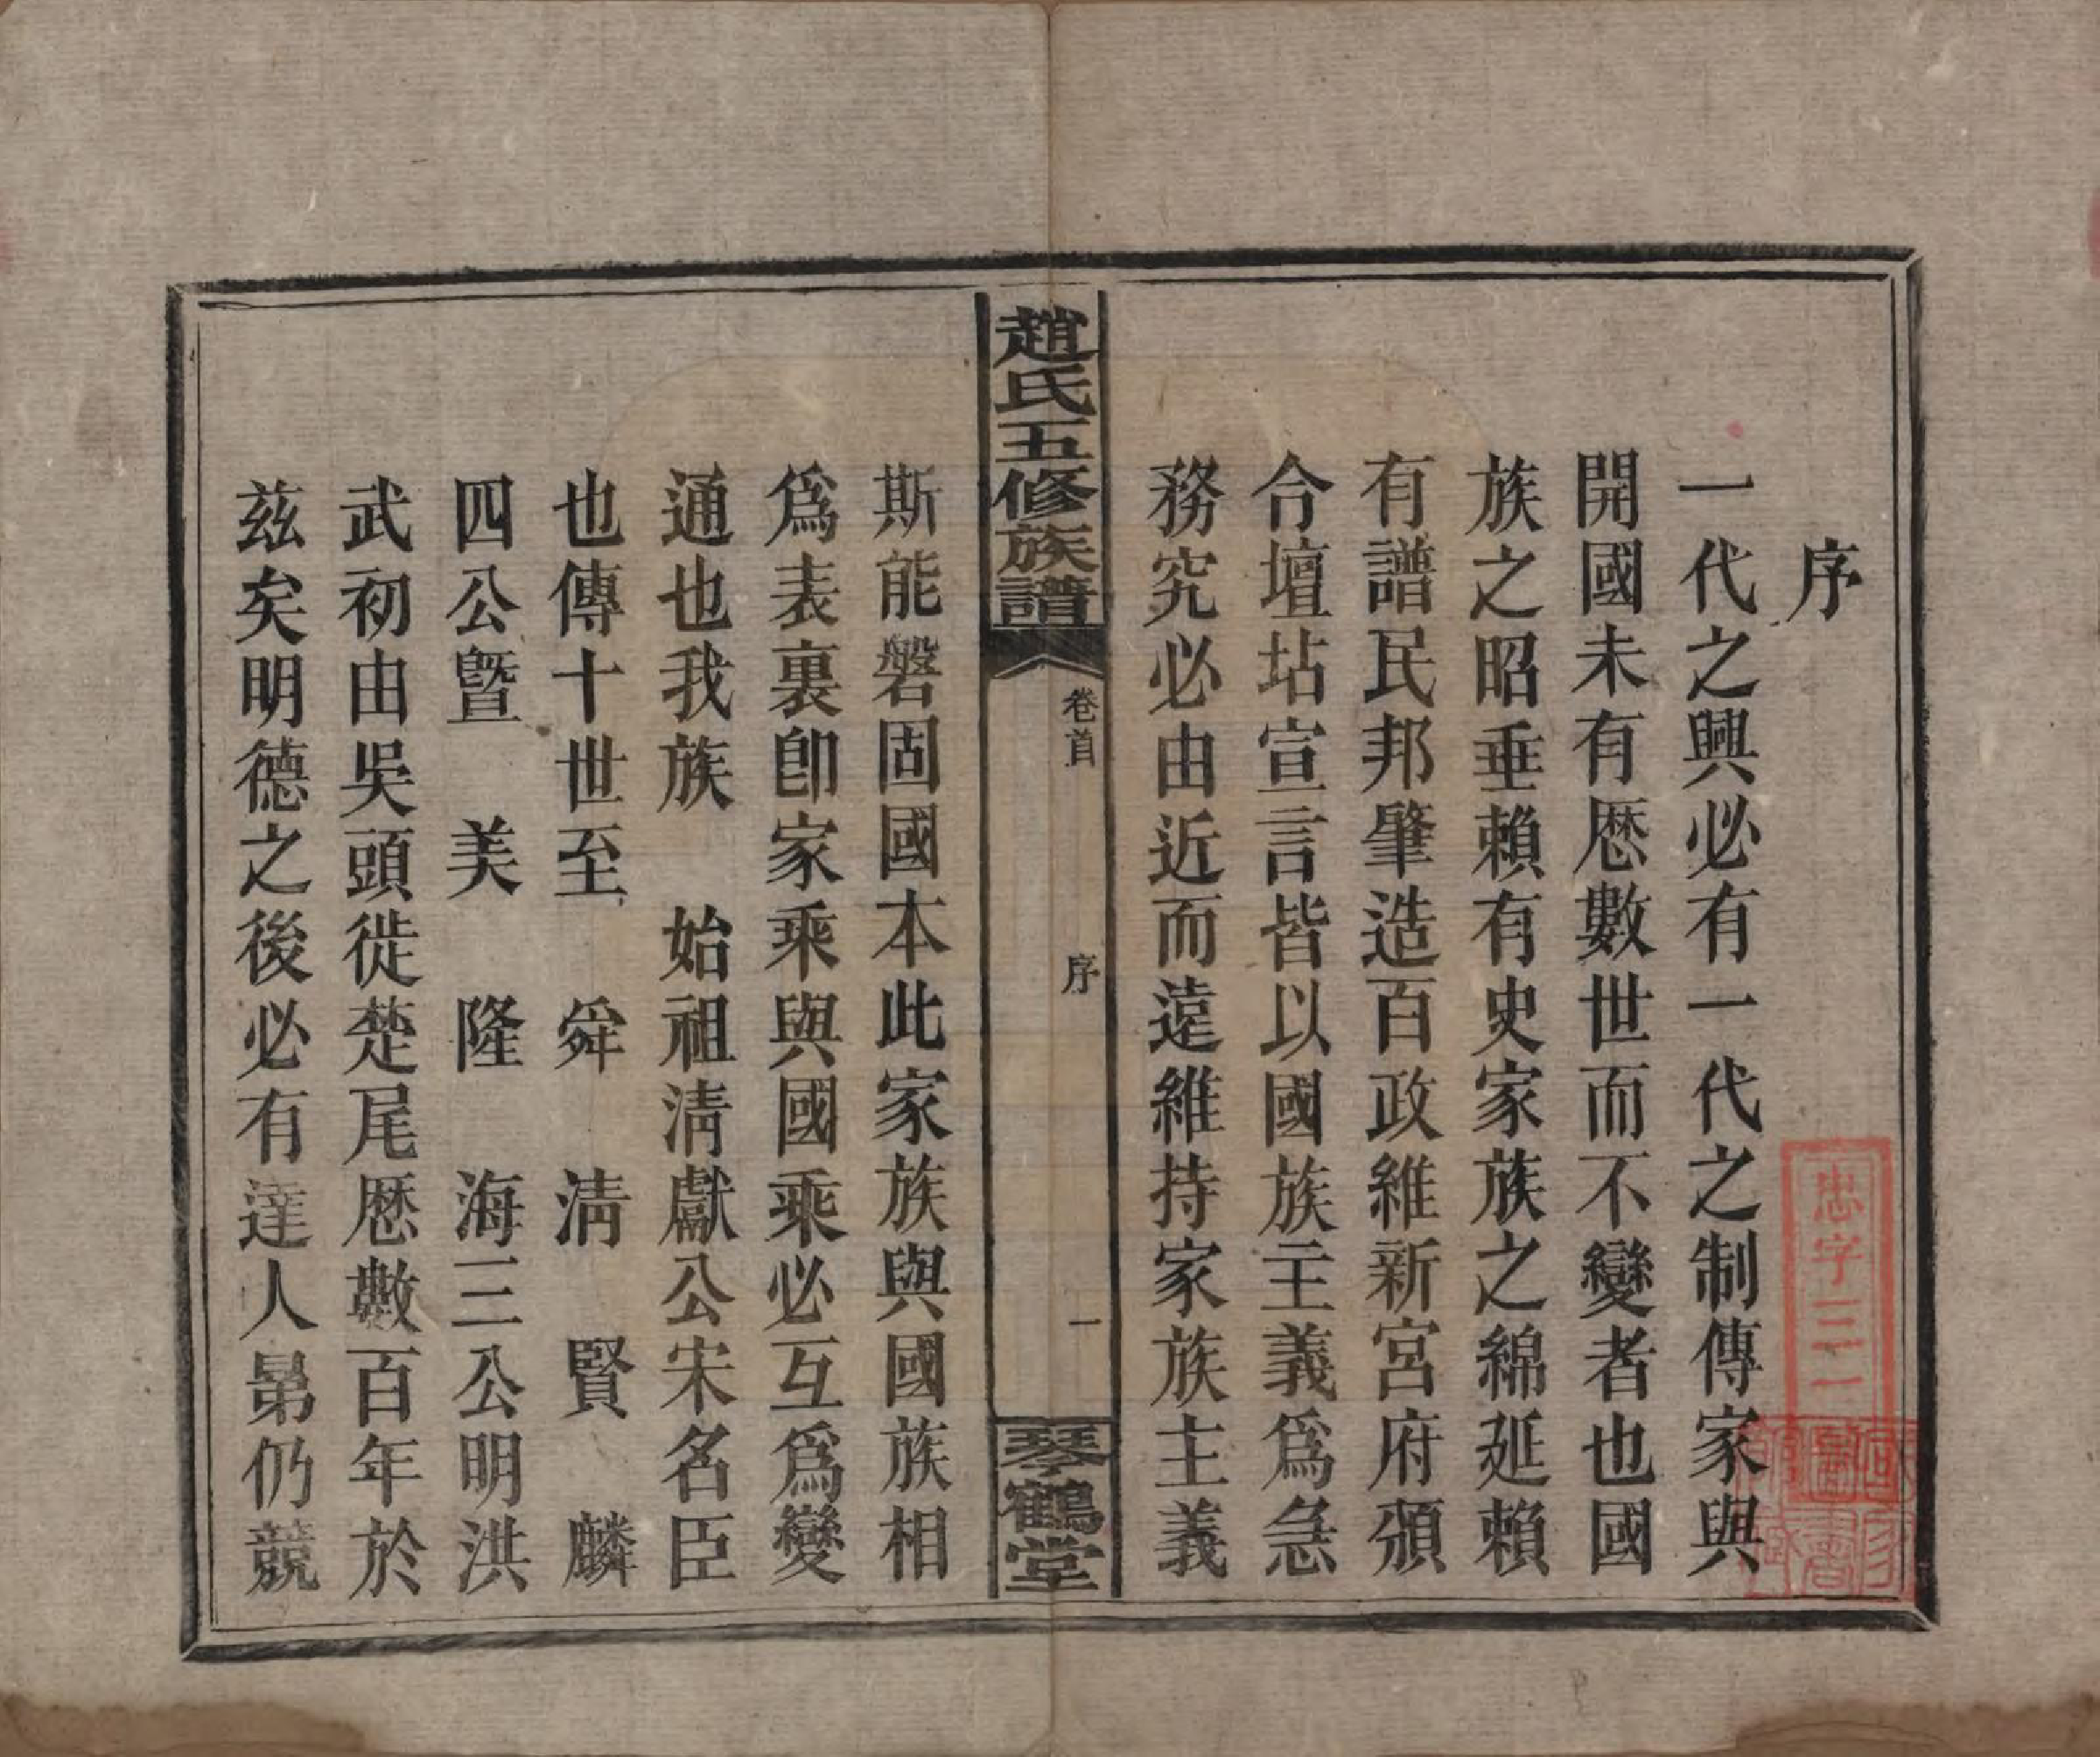 序
一代之興必有一代之制傳家與
開國未有厯數世而不變者也國
族之昭垂賴有史家族之綿延賴
有譜民邦肇造百政維新宮府頒
合壇坫宣言皆以國族主義為急
務究必由近而遠維持家族主義
趙氏五修族譜
卷首
序
一
琴鶴堂
斯能磐固國本此家族與國族相
為表裏卽家乘與國乘必互為變
通也我族 始祖淸獻公宋名臣
也傳十世至 舜 淸 賢 麟
四公曁 美 隆 海三公明洪
武初由吳頭徙楚尾厯數百年於
茲矣明德之後必有達人曷仍競
忠字三一